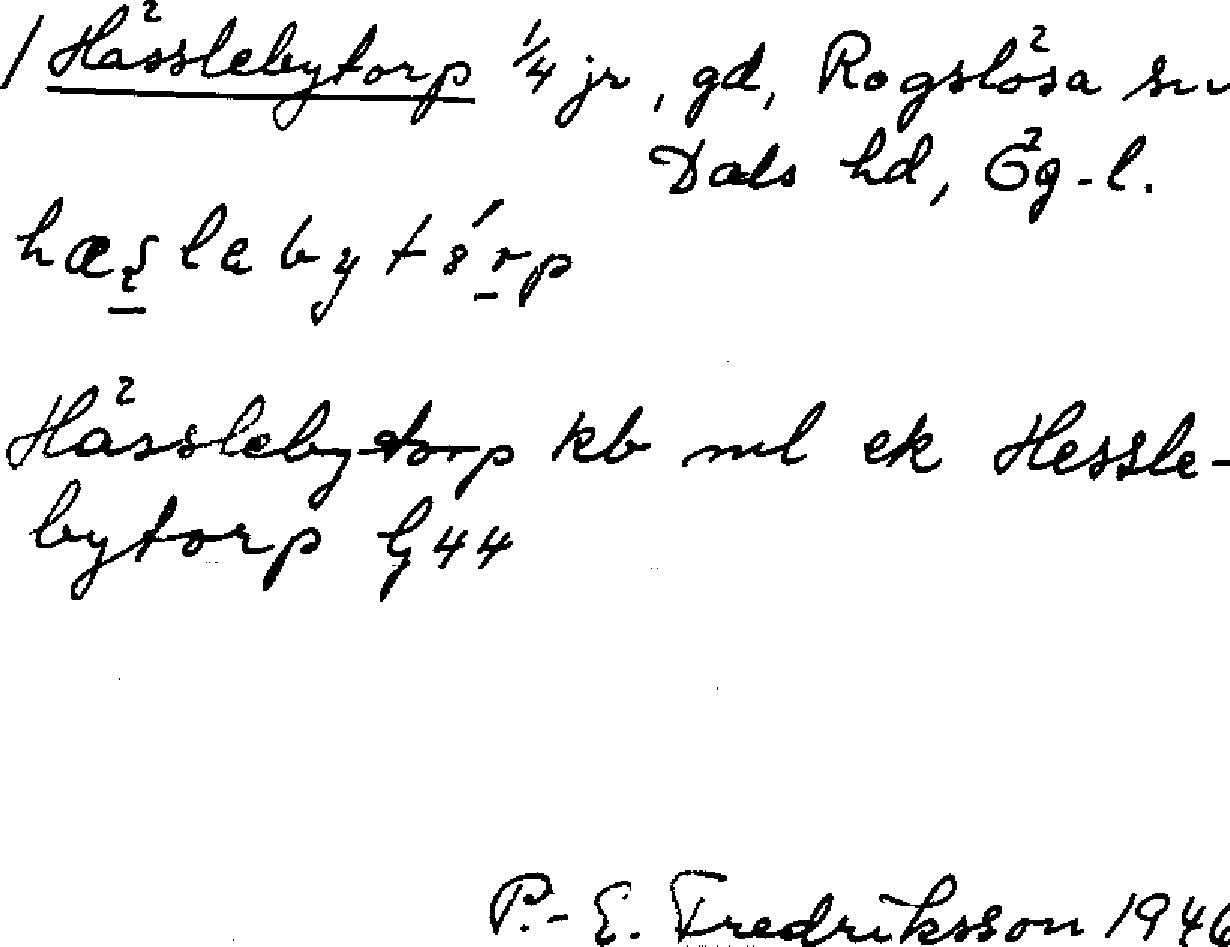 / Hässlebytorp 1/4 jr, gd, Rogslösa sn
Dals hd, Ög-l.
hæslebytórp
Hässlebytorp kb ml ek Hessle-
bytorp G44
P.-E. Fredriksson 1946